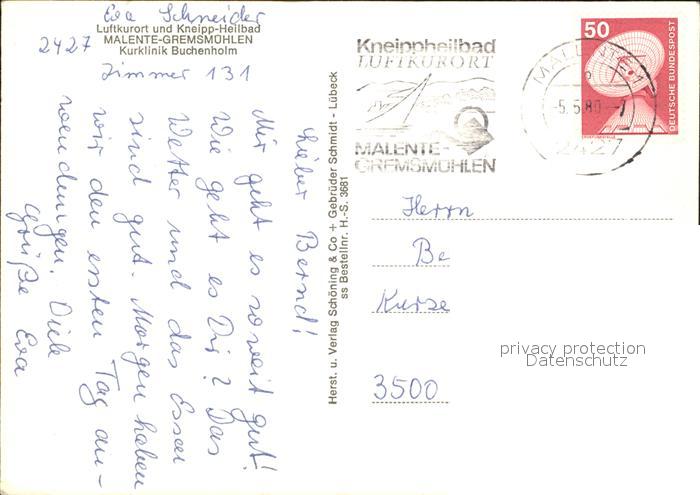 Eva Schneider
Luftkurort und Kneipp-Heilbad
2427 MALENTE-GREMSMÜHLEN
Kurklinik Buchenholm
Zimmer 131
Lieber Bernd!
Mir geht es soweit gut!
Wie geht es Dir? Das
Wetter und das Essen
sind gut. Morgen haben
wir den ersten Tag an-
wendungen. Viele
Grüße Eva
Herst. u. Verlag Schöning & Co + Gebrüder Schmidt - Lübeck
ss Bestellnr. H.-S. 3681
Kneippheilbad
LUFTKURORT
MALENTE-
GREMSMÜHLEN
MALENTE 1
-5.5.80--7
2427
50
DEUTSCHE BUNDESPOST
Herrn
Be
Kurse
3500
privacy protection
Datenschutz